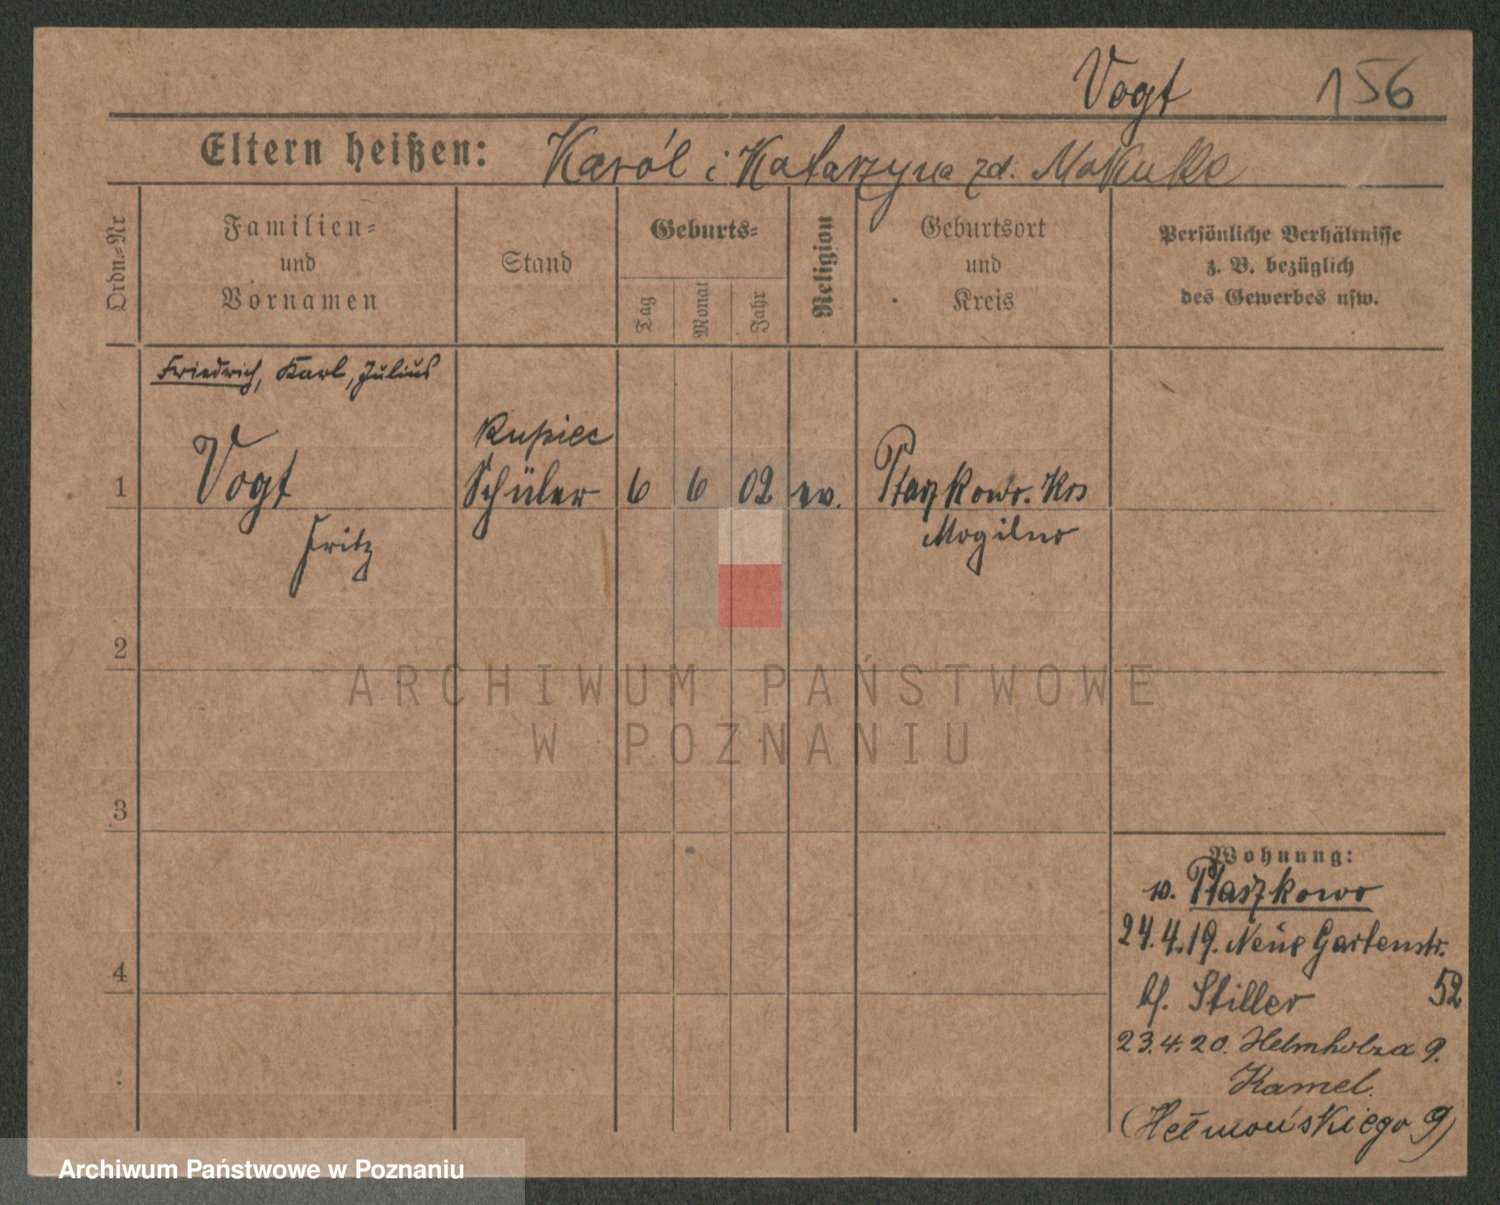 Vogt 156
Eltern heißen: Karól i Katarzyna zd. Makulke
Ordn=Nr
Familien=
und
Vornamen
Stand
Geburts=
Tag
Monat
Jahr
Religion
Geburtsort
und
Kreis
Persönliche Verhältnisse
z. B. bezüglich
des Gewerbes usw.
Friedrich, Karl, Julius
Kupiec
1 Vogt Schüler 6 6 02 ev. Ptaszkowo. Krs
Fritz Mogilno
2
3
4
Wohnung:
w. Ptaszkowo
24.4.19. Neue Gartenstr.
bf. Stiller 52
23.4.20. Helmholza 9.
Kamel.
(Hełmońskiego 9)
ARCHIWUM PAŃSTWOWE
W POZNANIU
Archiwum Państwowe w Poznaniu